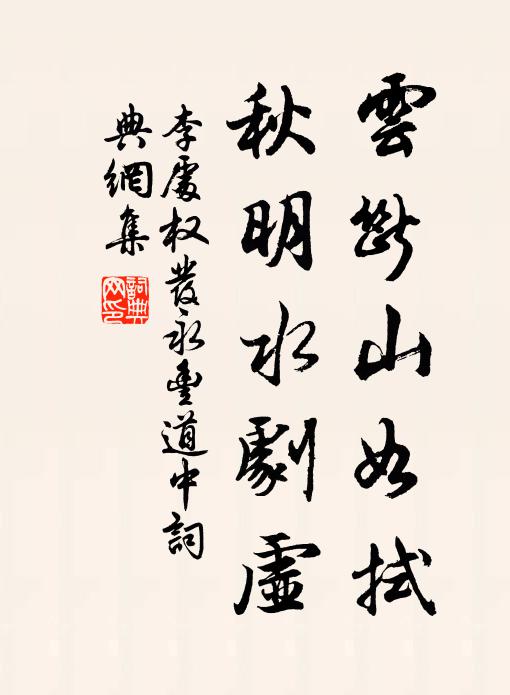 雲斷山如拭
秋明水劇虛
李處权發永豊道中詞
典網集
詞典
网印